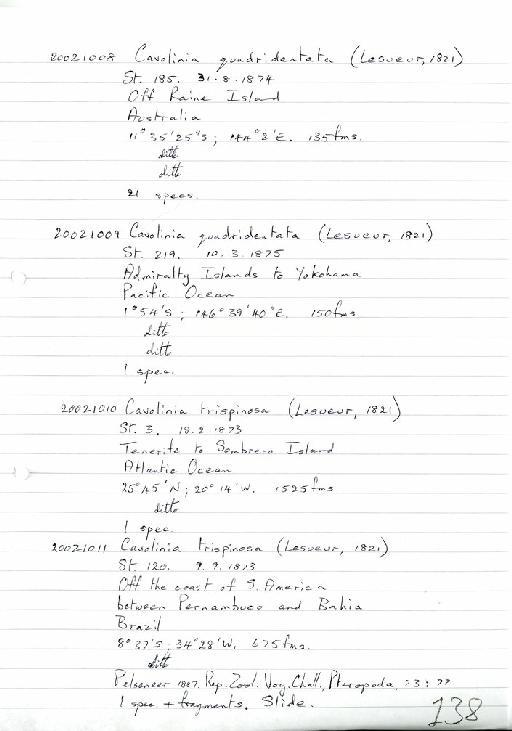 20021008 Cavolinia quadridentata (Lesueur, 1821)
St. 185. 31.8.1874
Off Raine Island
Australia
11° 35' 25"S; 144° 2' E. 135 fms.
ditto
ditto
21 specs.
20021009 Cavolinia quadridentata (Lesueur, 1821)
St. 219. 10.3.1875
Admiralty Islands to Yokohama
Pacific Ocean
1° 54' S; 146° 39' 40" E. 150 fms
ditto
ditto
1 spec.
20021010 Cavolinia trispinosa (Lesueur, 1821)
St. 3. 18.2.1873
Tenerife to Sombrero Island
Atlantic Ocean
25° 45' N; 20° 14' W. 1525 fms
ditto
1 spec.
20021011 Cavolinia trispinosa (Lesueur, 1821)
St. 120. 9.9.1873
Off the coast of S. America
between Pernambuco and Bahia
Brazil
8° 37' S; 34° 28' W. 675 fms.
ditto
Pelseneer 1887. Rep. Zool. Voy. Chall., Pteropoda, 23:
1 spec + fragments. Slide.
138